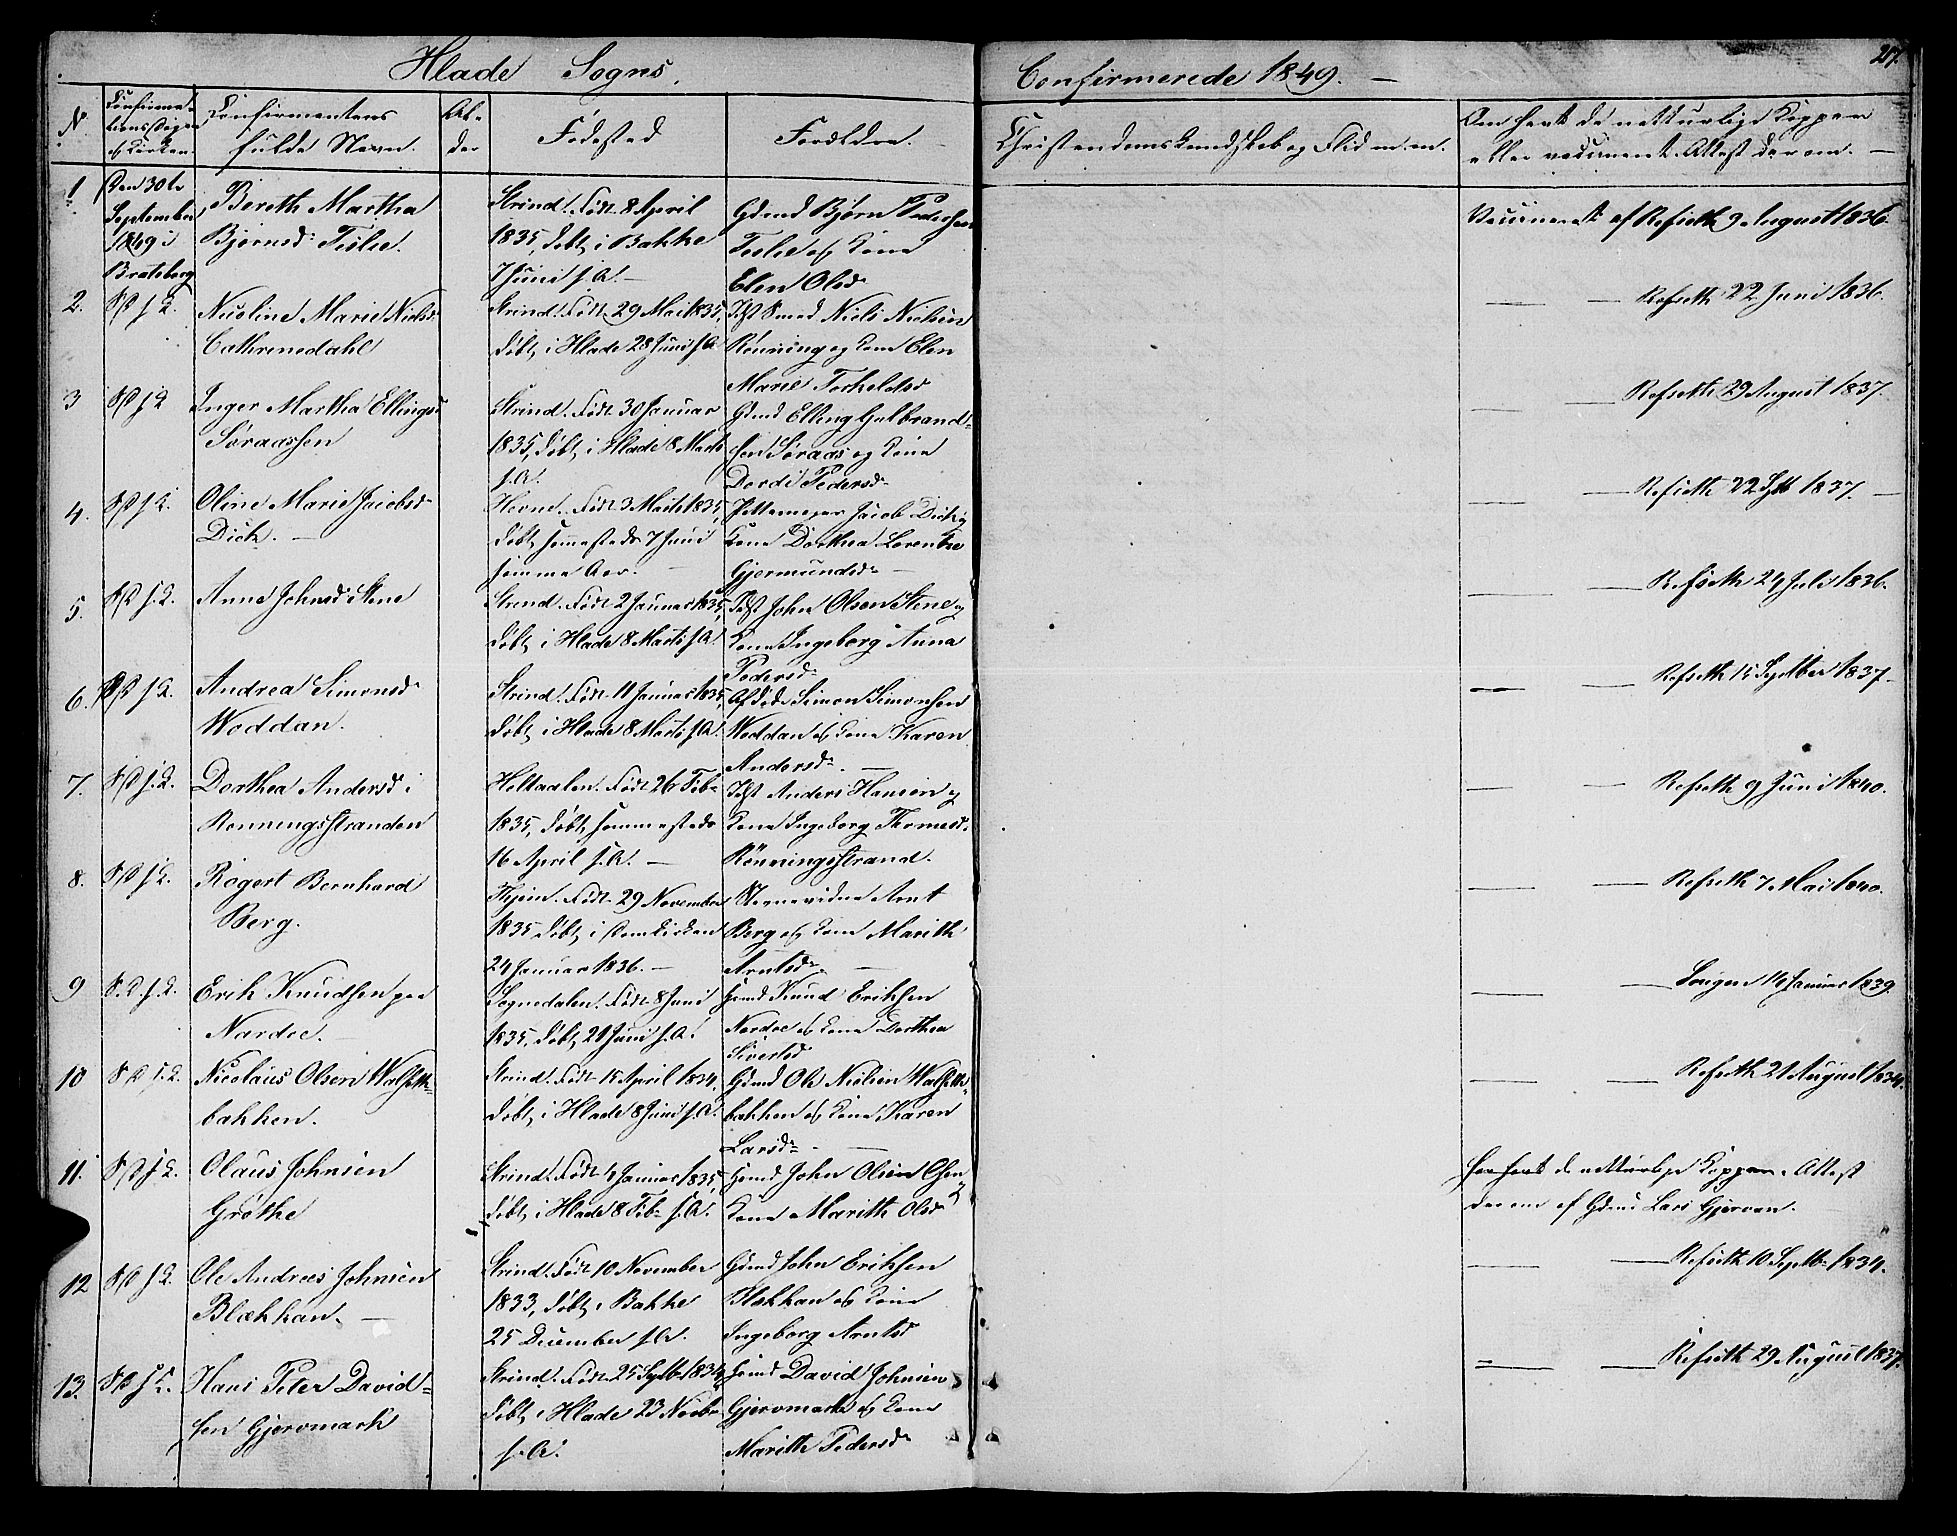 Hlade Sogns
Confirmerede 1849. —
217.
N.
Confirma-
tions Dagen
& Kirken.
Confirmantens
fulde Navn.
Al-
der
Fødested
Forældre.
Christendomskundskab og Flid m. m.
Om havt de naturlige Kopper
eller vaccineret. Attest derom. —
1.
Den 30te
September
1849 i
Bratsberg
Bereth Martha
Bjørnsd:
Strind. Født 8 April
1835, døbt i Bakke
7 Juni s. A. —
Gdmd Bjørn Pedersen
og Kone
Elen Olsd.
Vaccineret af Refseth 9 August 1836.
2.
Nicoline Marie Nielsd.
Cathrinedahl
Strind. Født 29 Mai 1835,
døbt i Hlade 28 Juni s. A.
Smed Niels Nielsen
Rønning og Kone Elen
Marie Torkelsd.
— — Refseth 22 Juni 1836.
3
Inger Martha Ellingsd.
Søraassen
Strind. Født 30 Januar
1835, døbt i Hlade 8 Marts
s. A.
Gdmd Elling Gulbrand-
sen Søraas og Kone
Dordi Pedersd.
— — Refseth 29 August 1837.
4.
Oline Marie Jacobsd.
Dick. —
Født 3 Marts 1835,
døbt sammesteds 7 Juni
samme Aar. —
Jacob Dick og
Kone Dorthea Lorentze
Gjermundsd. —
— — Refseth 22 Sptb 1837. —
5.
Anne Johnsd. Stene
Strind. Født 2 Januar 1835,
døbt i Hlade 8 Marts s. A.
John Olsen Stene og
Kone Ingeborg Anna
Pedersd.
— — Refseth 24 Juli 1836.
6.
Andrea Simonsd.
Woddan.
Strind. Født 11 Januar 1835,
døbt i Hlade 8 Marts s. A.
Afdøde Simon Simonsen
Woddan og Kone Karen
Andersd. —
— — Refseth 15 Septber 1837.
7.
Dorthea Andersd. i
Rønningsstranden
Holtaalen. Født 26 Feb.
1835, døbt sammesteds
16 April s. A. —
Anders Hansen og
Kone Ingeborg Thomasd.
Rønningsstrand.
— — Refseth 9 Juni 1840.
8.
Rogert Bernhard
Berg.
Født 29 November
1835, døbt i Domkirken
24 Januar 1836. —
Arnt
Berg og Kone Marith
Arntsd. —
— — Refseth 7 Mai 1840.
9
Erik Knudsen paa
Nardoe. —
Sognedalen. Født 8 Juni
1835, døbt 21 Juni s. A.
Gdmd Knud Eriksen
Nardoe og Kone Dorthea
Sivertsd.
— — 16 Januar 1839.
10
Nicolaus Olsen
bakken.
Strind. Født 15 April 1834,
døbt i Hlade 8 Juni s. A.
Gdmd Ole Nielsen
bakken og Kone Karen
Larsd. —
— — Refseth 21 August 1834.
11.
Olaus Johnsen
Grøthe
Strind. Født 4 Januar 1835,
døbt i Hlade 8 Feb. s. A.
Gdmd John Olsen
Kone Marith Olsd.
har havt de naturlige Kopper. Attest
derom af Gdmd Lars Gjervan.
12
Ole Andreas Johnsen
Blækkan. —
Strind. Født 10 November
1833, døbt i Bakke
25 December s. A.
Gdmd John Eriksen
Blækkan og Kone
Ingeborg Arntsd.
— — Refseth 10 Septb. 1834.
13.
Hans Peter David-
sen Gjervmark
Strind. Født 25 Septb 1834,
døbt i Hlade 23 Novbr
s. A.
Gdmd David Johnsen
Gjervmark og Kone
Marith Pedersd.
— — Refseth 29 August 1837.